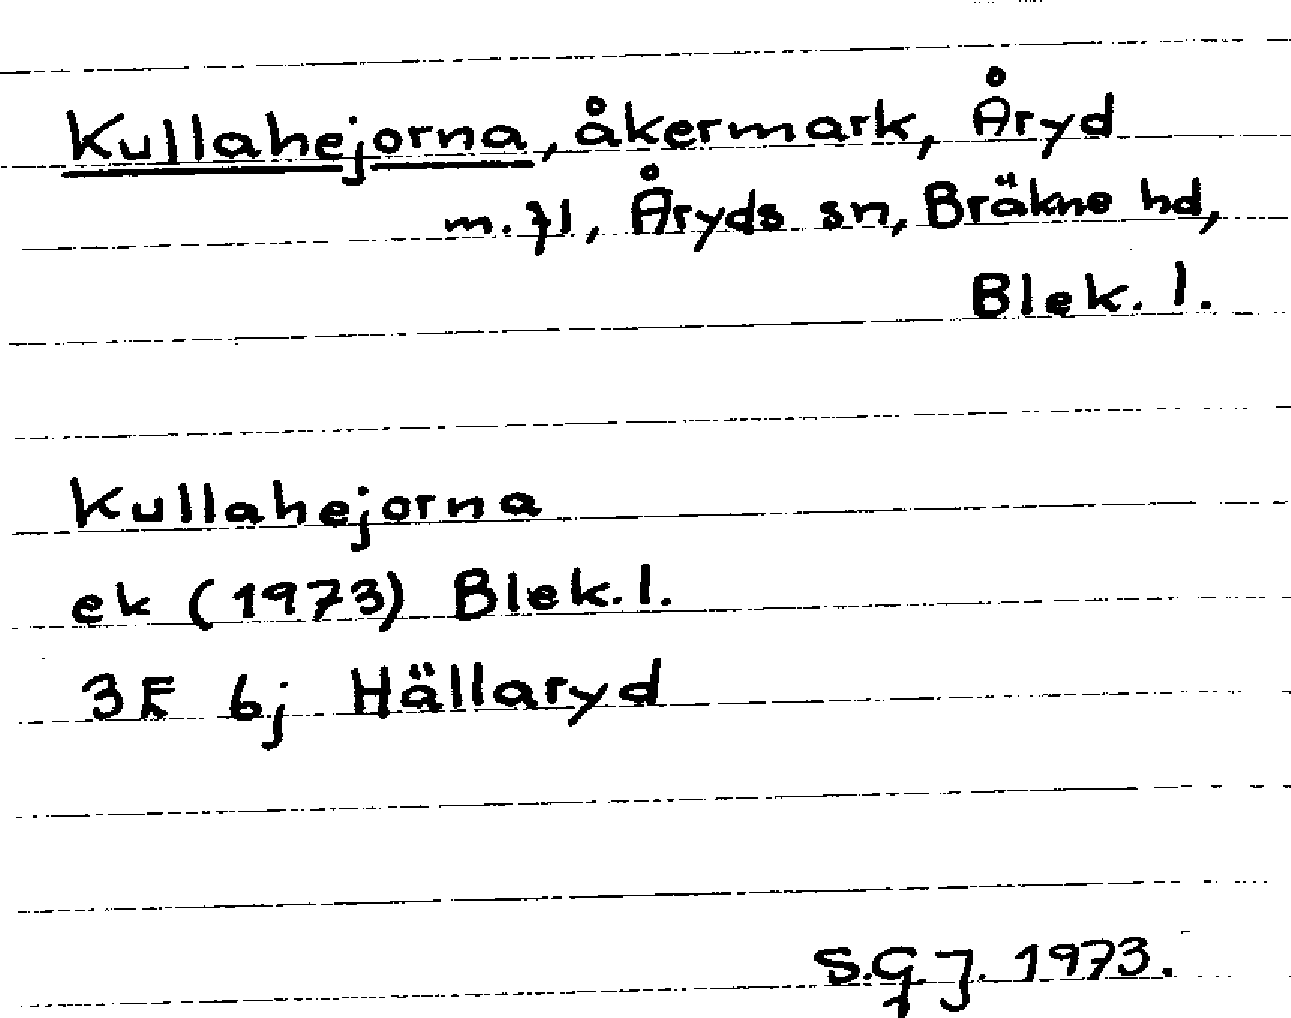 Kullahejorna, åkermark, Åryd
m. fl, Åryds sn, Bräkne hd,
Blek. l.
Kullahejorna
ek (1973) Blek. l.
3F 6j Hällaryd
S.G.J. 1973.